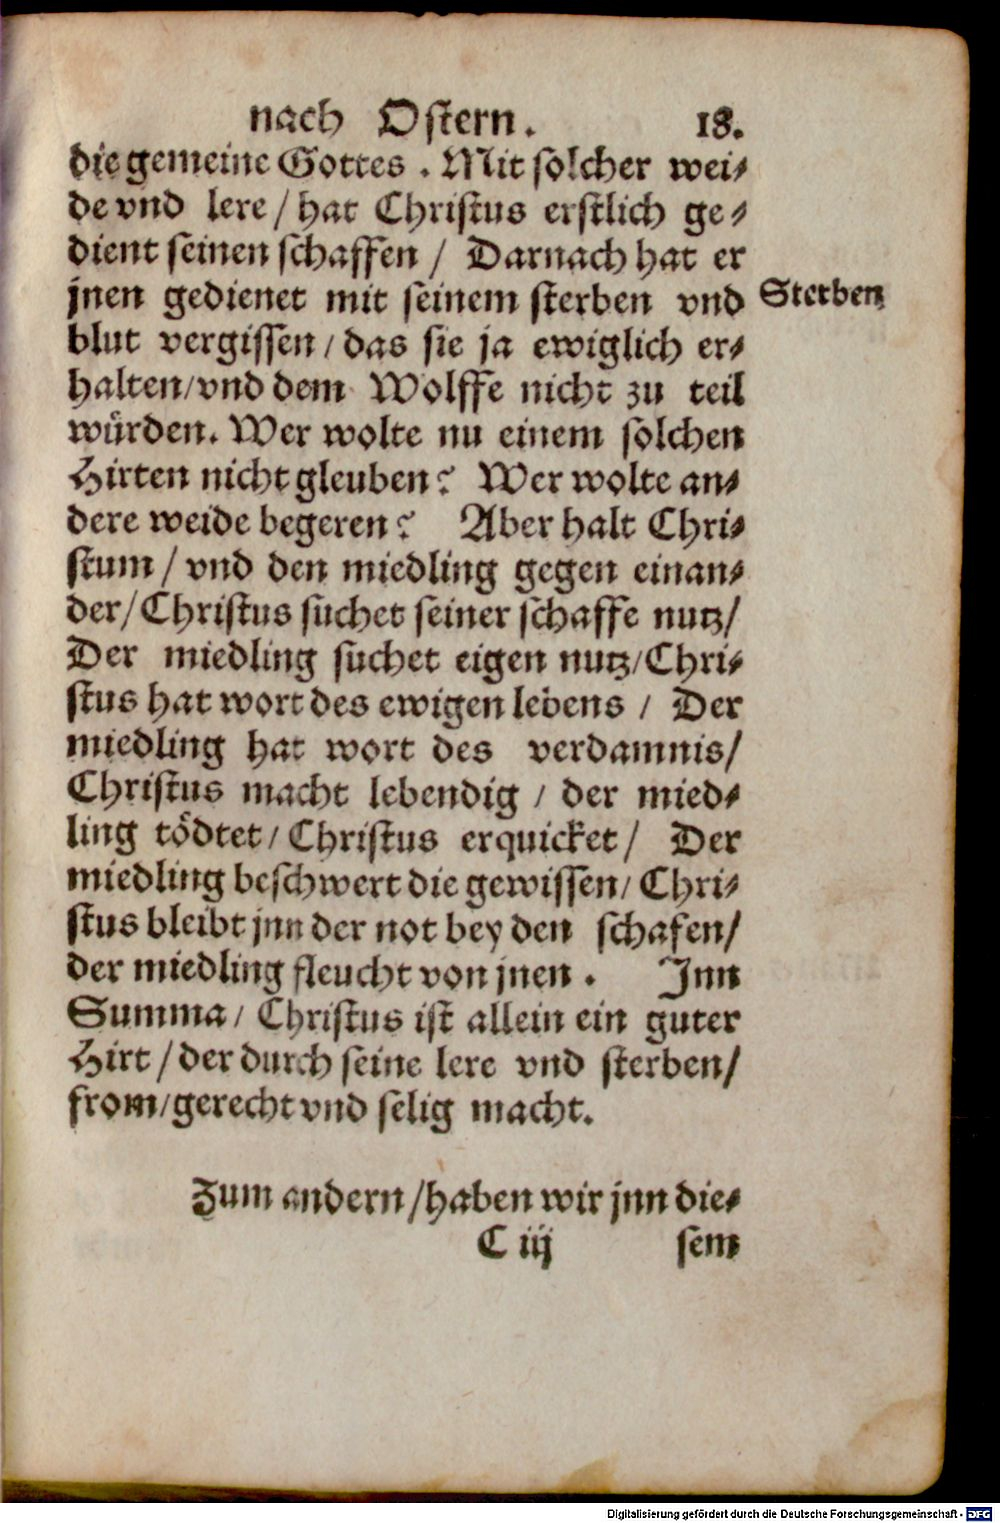 nach Ostern. 18.
die gemeine Gottes. Mit solcher wei⸗
de vnd lere / hat Christus erstlich ge⸗
dient seinen schaffen / Darnach hat er
jnen gedienet mit seinem sterben vnd
Sterben
blut vergissen / das sie ja ewiglich er⸗
halten / vnd dem Wolffe nicht zu teil
würden. Wer wolte nu einem solchen
Hirten nicht gleuben? Wer wolte an⸗
dere weide begeren? Aber halt Chri⸗
stum / vnd den miedling gegen einan⸗
der / Christus suchet seiner schaffe nutz /
Der miedling suchet eigen nutz / Chri⸗
stus hat wort des ewigen lebens / Der
miedling hat wort des verdamnis /
Christus macht lebendig / der mied⸗
ling tödtet / Christus erquicket / Der
miedling beschwert die gewissen / Chri⸗
stus bleibt jnn der not bey den schafen /
der miedling fleucht von jnen. Inn
Summa / Christus ist allein ein guter
Hirt / der durch seine lere vnd sterben /
from / gerecht vnd selig macht.
Zum andern / haben wir jnn die⸗
C iij sem
Digitalisierung gefördert durch die Deutsche Forschungsgemeinschaft - DFG